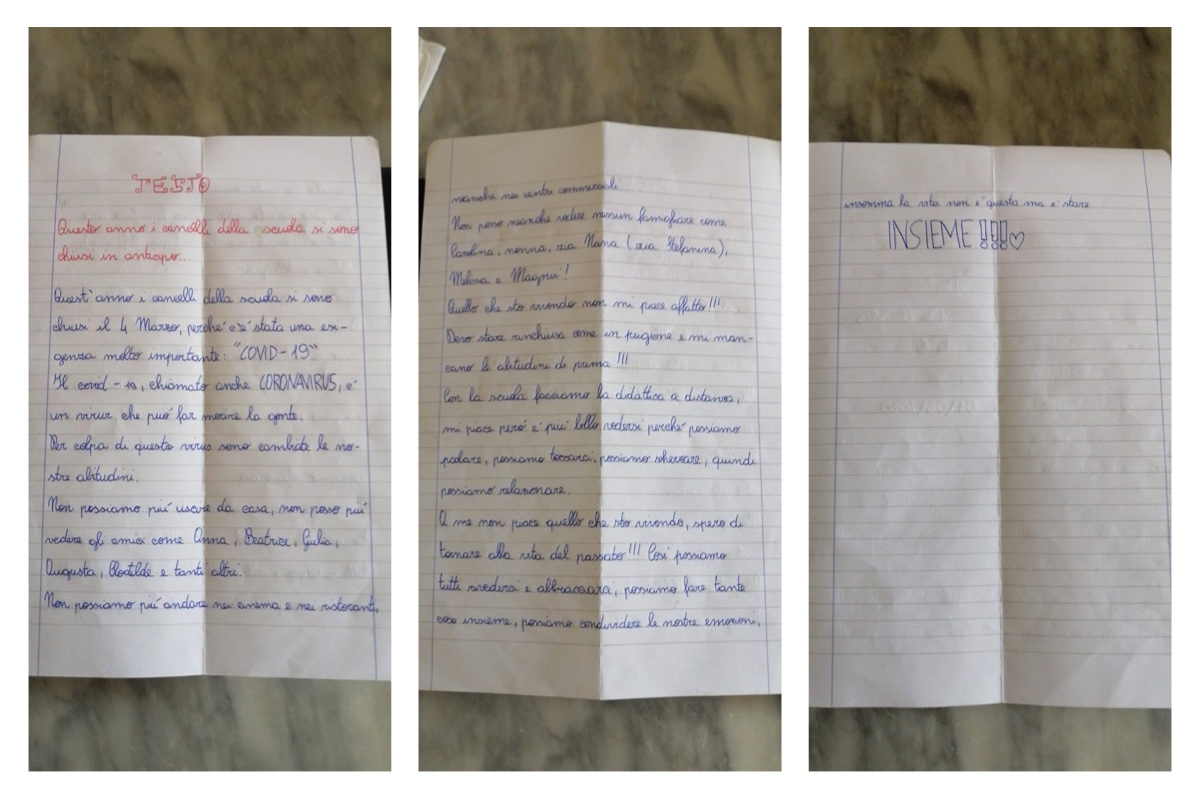 TESTO
Questo anno i cancelli della scuola si sono
chiusi in anticipo...
Quest'anno i cancelli della scuola si sono
chiusi il 4 Marzo, perché c'è stata una esi-
genza molto importante: "COVID-19".
Il covid-19, chiamato anche CORONAVIRUS, é
un virus che puó far morire la gente.
Per colpa di questo virus sono cambiate le no-
stre abitudini.
Non possiamo piú uscire da casa, non posso piú
vedere gli amici come Anna, Beatrice, Giulia,
Augusta, Clotilde e tanti altri.
Non possiamo piú andare nei cinema e nei ristoranti,
neanche nei centri commerciali
Non posso neanche vedere nessun famigliare come
Carolina, nonna, zia Nana (zia Stefanina),
Melissa e Magnui!
Quello che sto vivendo non mi piace affatto!!!
Devo stare rinchiusa come in prigione e mi man-
cano le abitudini di prima!!!
Con la scuola facciamo la didattica a distanza,
mi piace peró é piu' bello vedersi perché possiamo
parlare, possiamo toccarci, possiamo scherzare, quindi
possiamo relazionare.
A me non piace quello che sto vivendo, spero di
tornare alla vita del passato!!! Cosí possiamo
tutti rivederci e abbracciarci, possiamo fare tante
cose insieme, possiamo condividere le nostre emozioni,
insomma la vita non é questa ma é stare
INSIEME !!!♡